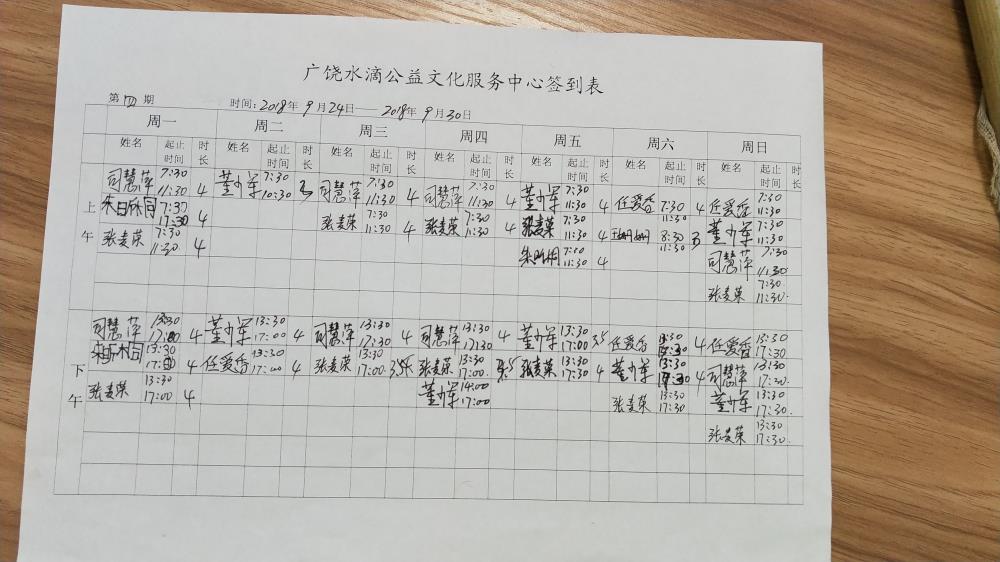 广饶水滴公益文化服务中心签到表
第 四 期 时间:2018年 9月24日——2018年 9月30日
周一 周二 周三 周四 周五 周六 周日
姓名 起止时间 时长 姓名 起止时间 时长 姓名 起止时间 时长 姓名 起止时间 时长 姓名 起止时间 时长 姓名 起止时间 时长 姓名 起止时间 时长
上午
司慧萍 7:30 11:30 4 董少军 7:30 10:30 3 司慧萍 7:30 11:30 4 司慧萍 7:30 11:30 4 董少军 7:30 11:30 4 任爱香 7:30 11:30 4 任爱香 7:30 11:30
朱昕桐 7:37 17:30 4 张麦荣 7:30 11:30 4 张麦荣 7:30 11:30 4 张麦荣 7:30 11:30 4 王姗姗 8:30 11:30 3 董少军 7:30 11:30
张麦荣 7:30 11:30 4 朱昕桐 7:00 11:30 4 司慧萍 7:30 11:30
张麦荣 7:30 11:30
下午
司慧萍 13:30 4 董少军 13:30 17:00 4 司慧萍 13:30 17:30 4 司慧萍 13:30 17:30 4 董少军 13:30 17:00 3.5 任爱香 13:30 4 任爱香 13:30 17:30
朱昕桐 13:30 4 任爱香 13:30 17:00 4 张麦荣 13:30 17:00 张麦荣 13:30 17:00 张麦荣 13:30 17:30 4 董少军 13:30 17:30 4 司慧萍 13:30 17:30
张麦荣 13:30 17:00 4 董少军 14:00 17:00 张麦荣 13:30 17:30 董少军 13:30 17:30
张麦荣 13:30 17:30